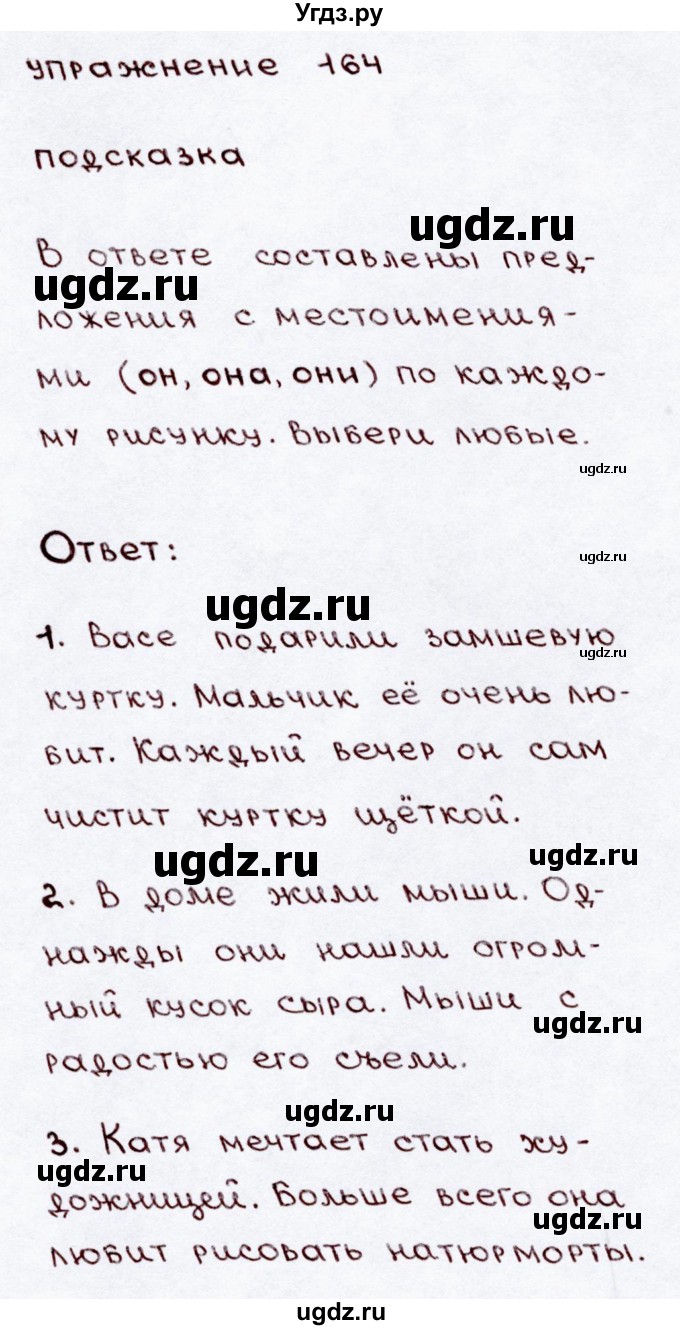 Угдз.ру
упражнение 164
подсказка
ugdz.ru
В ответе составлены пред-
ugdz.ru
ложения с местоимения-
ми (он, она, они) по каждо-
му рисунку. Выбери любые.
ugdz.ru
Ответ:
ugdz.ru
ugdz.ru
1. Васе подарили замшевую
ugdz.ru
куртку. Мальчик её очень лю-
бит. Каждый вечер он сам
чистит куртку щёткой.
ugdz.ru
ugdz.ru
2. В доме жили мыши. Од-
нажды они нашли огром-
ный кусок сыра. Мыши с
ugdz.ru
радостью его съели.
ugdz.ru
3. Катя мечтает стать ху-
ugdz.ru
дожницей. Больше всего она
ugdz.ru
любит рисовать натюрморты.
ugdz.ru